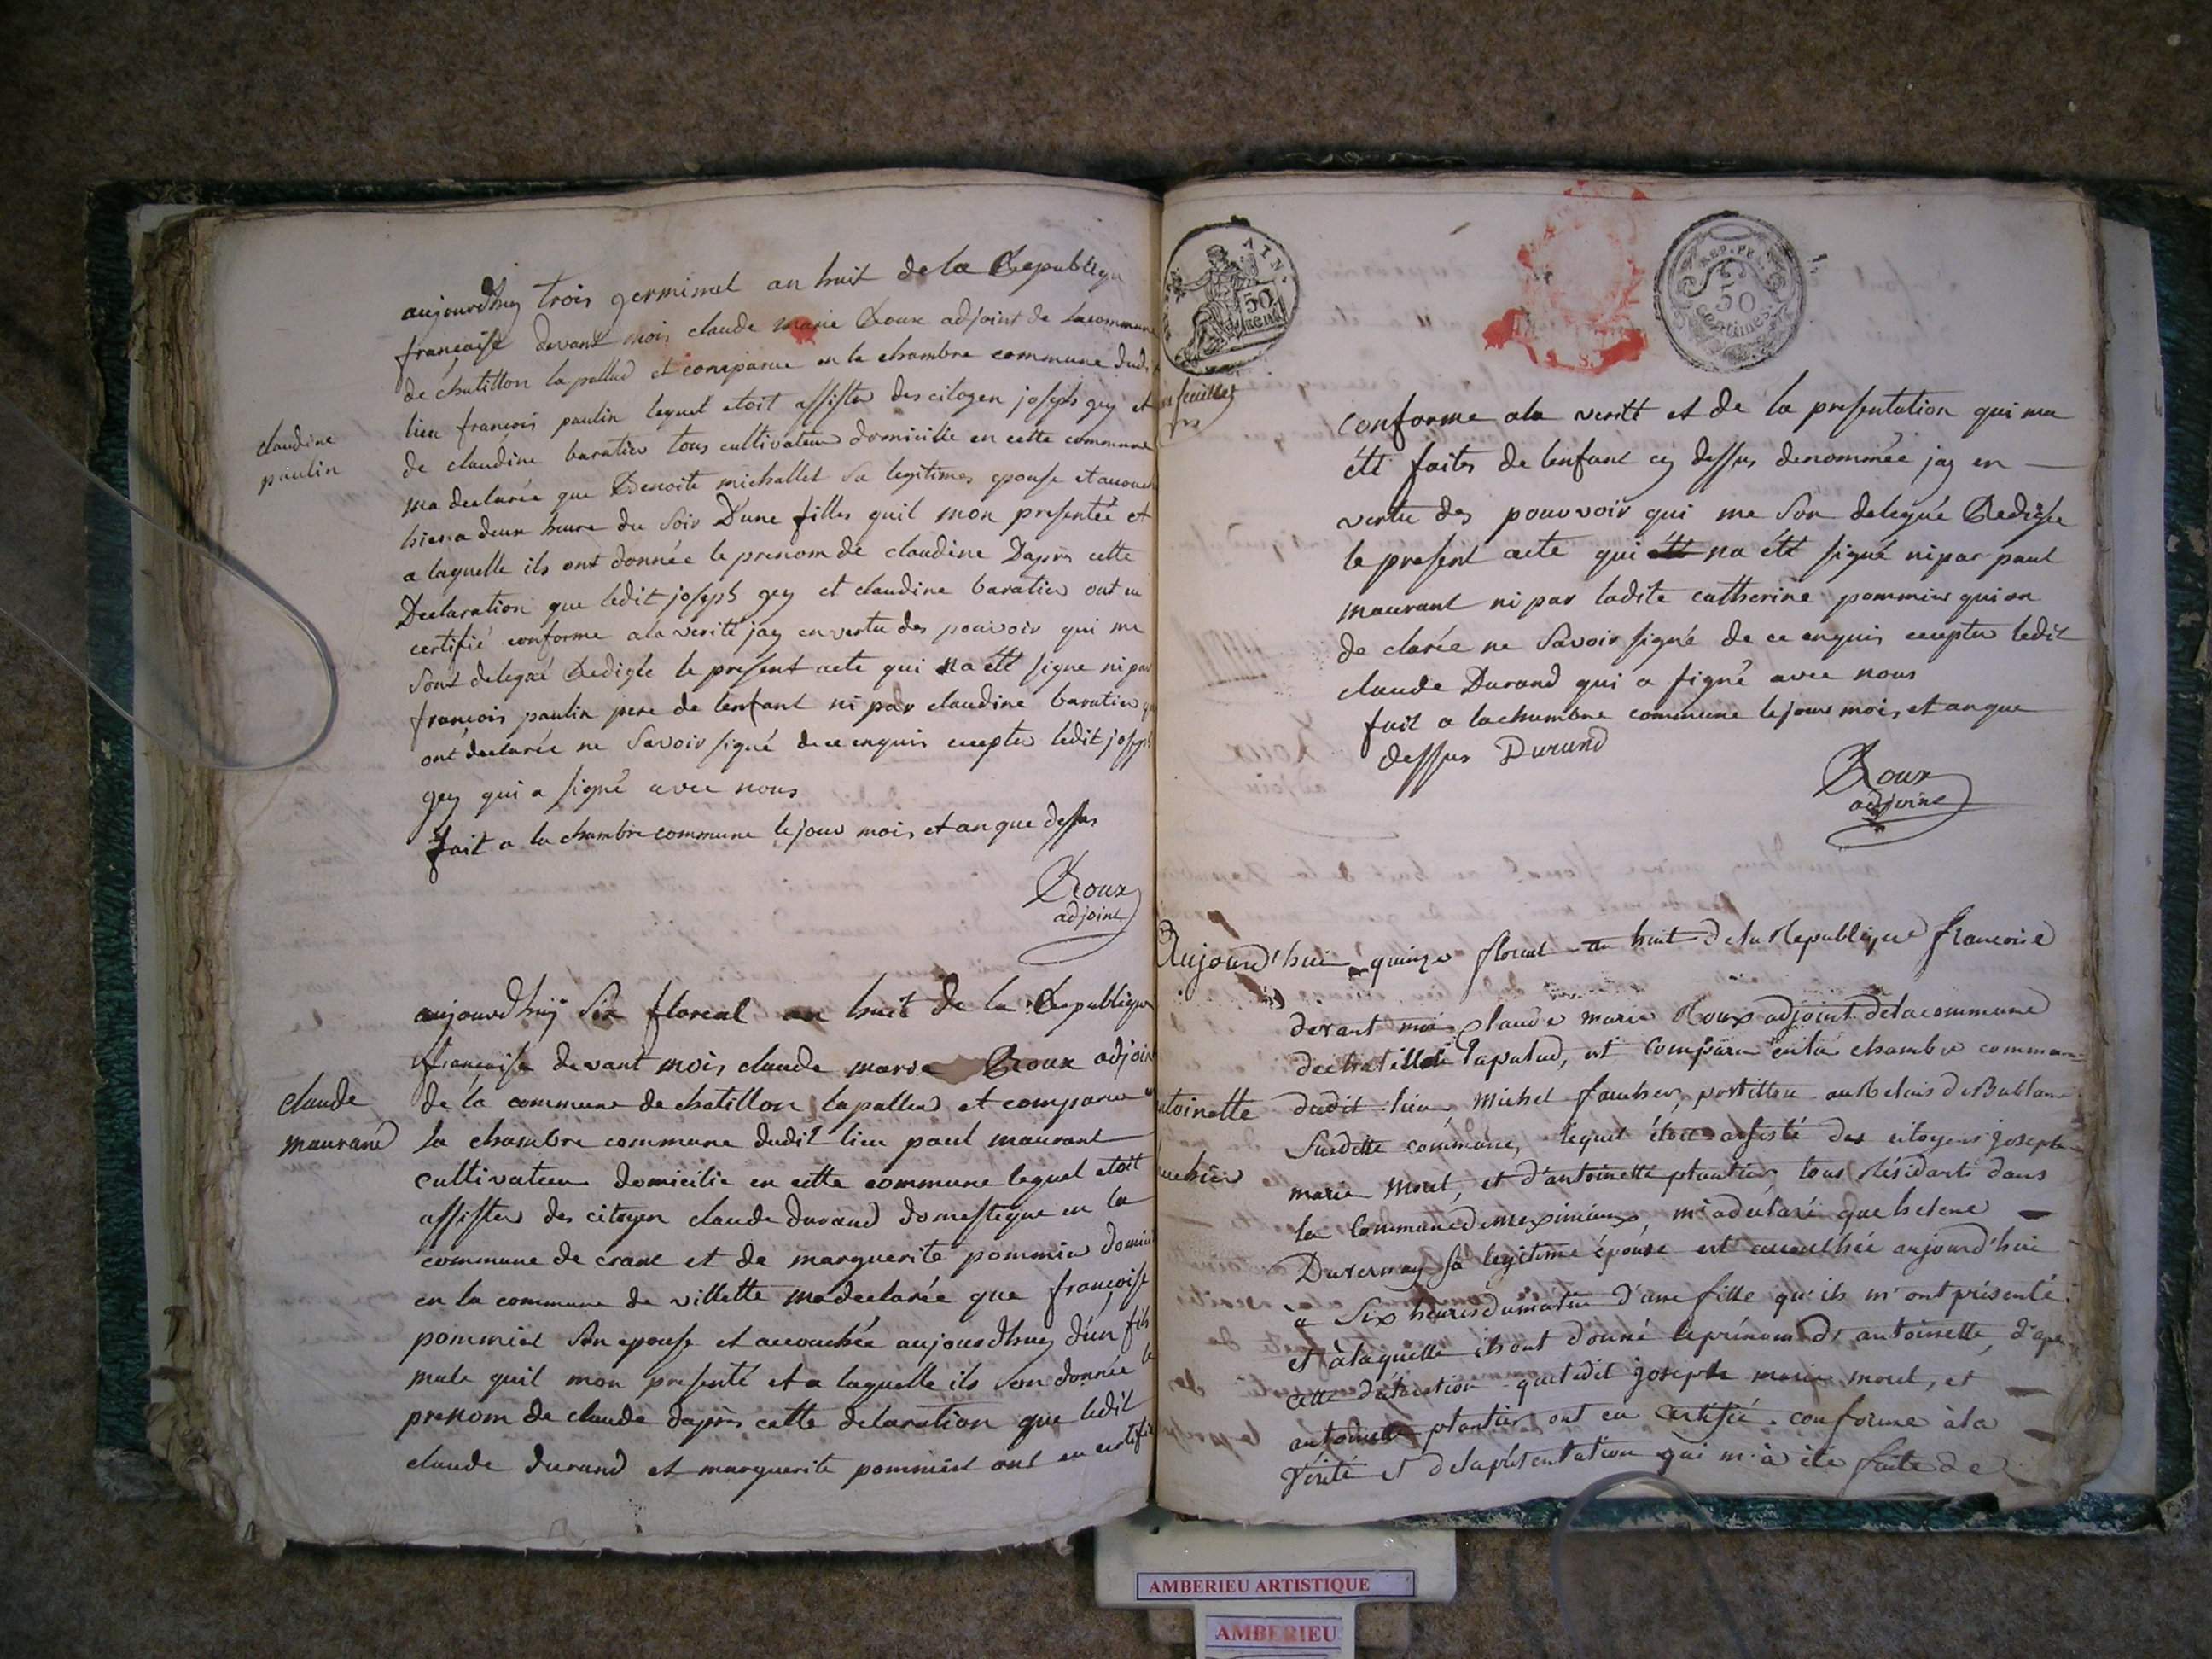 aujourdhuy trois germinal an huit de la Republiqu
française devant mois claude marie Roux adjoint de lacommune
de chatillon lapallud et comparue en la chambre commune dudi
lieu françois paulin lequel etoit assister des citoyen joseph gey et
claudine
paulin
de claudine baratier tous cultivateur domicilié en cette commune
ma declarée que Benoite michallet sa legitimes epouse et accouch
hier a deux heure du soir D'une filles quil mon presentée et
a laquelle ils ont donnée le prenom de claudine Dapres cette
Declaration que ledit joseph gey et claudine baratier ont eu
certifié conforme ala verité jay en vertu des pouvoir qui me
sont delegué Redigée le present acte qui na été signe ni par
françois paulin pere de lenfant ni par claudine baratier
ont declarée ne savoir signé de ce enquis excepter ledit joseph
gey qui a signé avec nous
fait a la chambre commune le jour mois et an que dessus
Roux
adjoint
aujourdhuÿ six floreal an huit de la Republique
française devant mois claude marie Roux adjoin
claude
maurand
de la commune de chatillon lapallud et comparue en
la chambre commune dudit lieu paul maurant
cultivateur domicilié en cette commune lequel etoit
assister des citoyen claude durand domestique en la
commune de crant et de marguerite pommier domici
en la commune de villette ma declarée que françoise
pommier son epouse et accouchée aujourdhuy d'un fils
male quil mon presenté et a laquelle ils son donnée le
prenom de claude dapres cette delaration que ledit
claude durand et marguerite pommier ont eu certifié
AIN
50
CENT
REP. FR.
50
centimes
feuillet
conforme ala verité et de la presentation qui ma
été faites de lenfant cy dessus denommée jay en
vertu des pouvoir qui me son delegué Redigée
le present acte qui été na été signé ni par paul
maurant ni par ladite catherine pommier qui on
de clarée ne savoir signé de ce enquis excepter ledit
claude Durand qui a signé avec nous
fait a lachambre commune le jour mois et an que
dessus Durand
Roux
adjoint
Aujourd'hui quinze floreal an huit de la Republique francoise
devant moi Claude marie Roux adjoint delacommune
dechatillon lapalud, est comparu enla chambre commune
ntoinette
uchier
dudit lieu Michel faucher, postillon au Relais de Bublane
Susdette commune, lequel étoit assisté des citoyens joseph
marie morel, et d'antoinette plantier tous Résidants dans
la Commune de meximieux, m'a declaré que helene
Duvernay sa legitime épouse est accouchée aujourd'hui
a Six heures du matin d'une fille qu'ils m'ont présenté
et àlaquelle ils ont donné le prénom d'antoinette, d'apr
cette déclaration que ledit joseph marie morel, et
antoinette plantier ont eu certifié conforme àla
vérité et delaprésentation qui m'a été faite de
AMBERIEU ARTISTIQUE
AMBERIEU